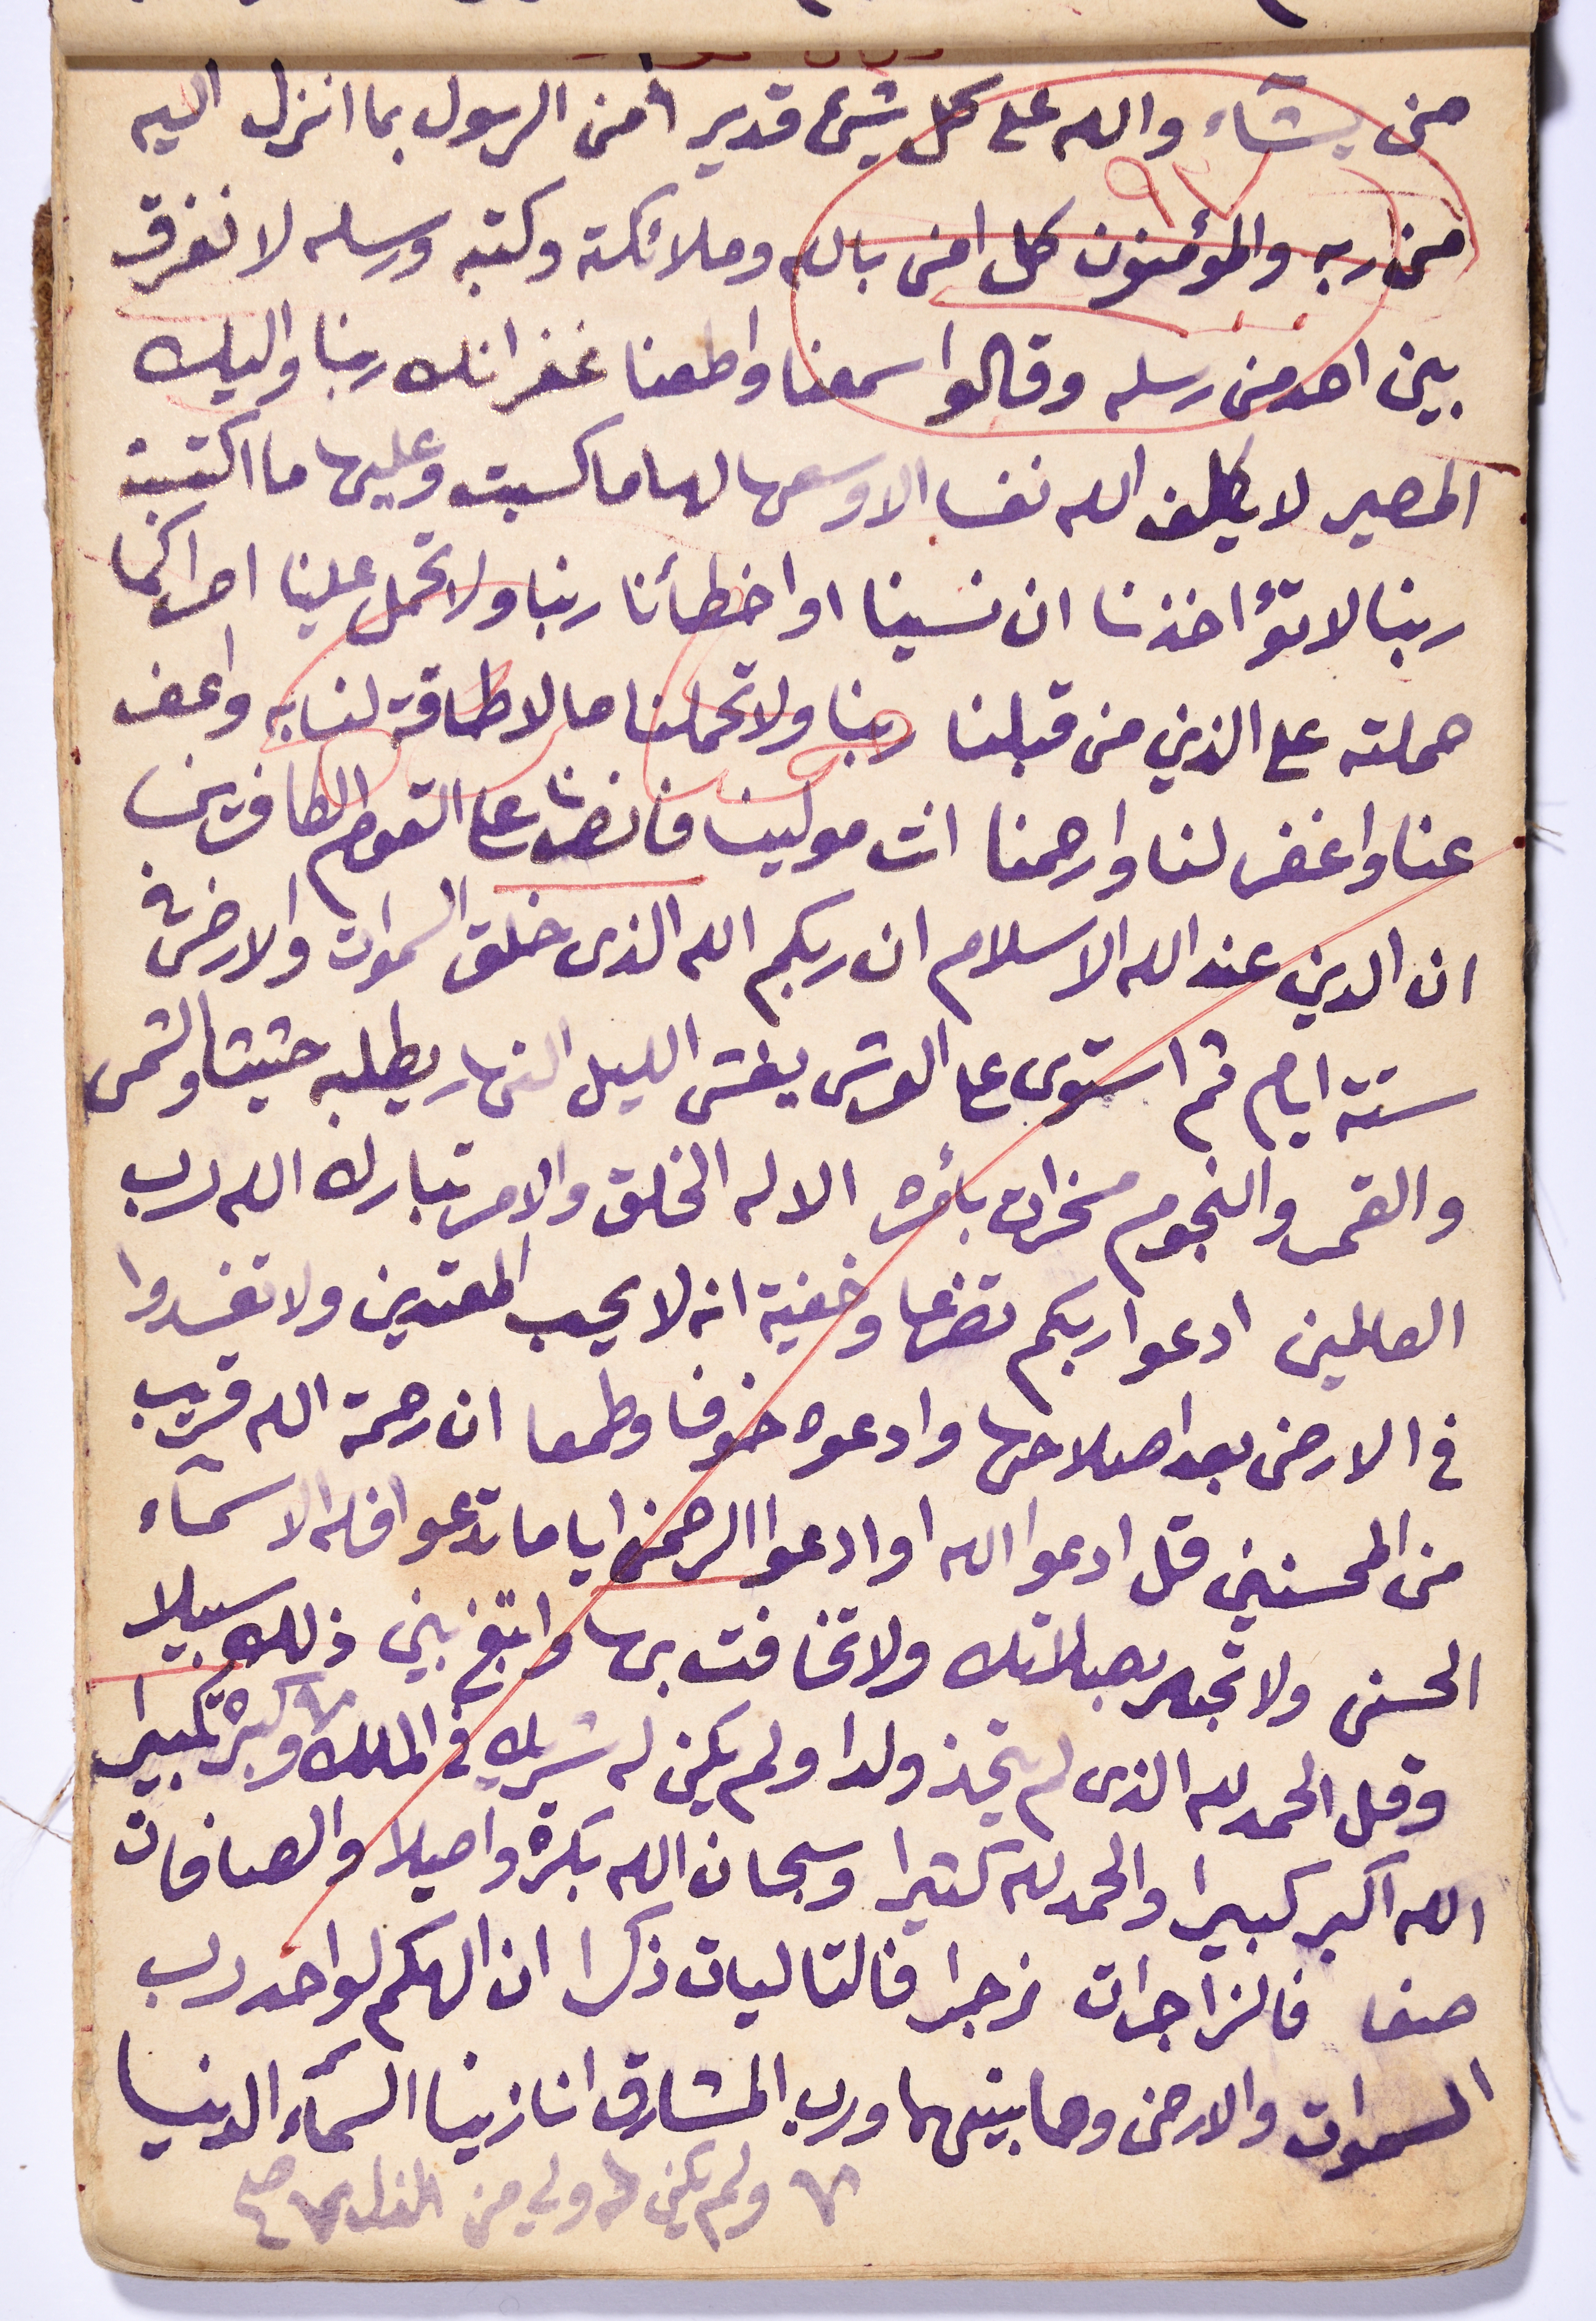 من يشآء والله على كل شيئ قدير امن الرسول بما انزل اليه
٩٧
من ربه والمؤمنون كل امن بالله وملائكته وكتبه ورسله لا نفرق
بين احد من رسله وقالوا سمعنا واطعنا غفرانك ربنا واليك
المصير لا يكلف الله نفسا الا وسعها لها ما كسبت وعليها ما اكتسبت
ربنا لا تؤاخذنا ان نسينا او اخطأنا ربنا ولا تحمل علينا اصرا كما
حملته على الذين من قبلنا ربنا ولا تحملنا ما لا طاقة لنا به واعف
عنا واغفر لنا وارحمنا انت مولينا فانصرنا على القوم الكافرين
ان الدين عند الله الاسلام ان ربكم الله الذى خلق السموات والارض في
ستة ايام ثم استوى على العرش يغشى الليل النهار يطلبه حثيثا والشمس
والقمر والنجوم مسخرات بأمره الا له الخلق والامر تبارك الله رب
العالمين ادعوا ربكم تضرعا وخفية انه لا يحب المعتدين ولا تفسدوا
في الارض بعد اصلاحها وادعوه خوفا وطمعا ان رحمة الله قريب
من المحسنين قل ادعوا الله او ادعوا الرحمن ايا ما تدعوا فله الاسمآء
الحسنى ولا تجهر بصلاتك ولا تخافت بها وابتغ بين ذلك سبيلا
وقل الحمد لله الذى لم يتخذ ولدا ولم يكن له شريك في الملك ٧ وكبره تكبيرا
الله اكبر كبيرا والحمد لله كثيرا وسبحان الله بكرة واصيلا والصافات
صفا فالزاجرات زجرا فالتاليات ذكرا ان الهكم لواحد رب
السموات والارض وما بينهما ورب المشارق انا زينا السمآء الدنيا
٧ ولم يكن له ولي من الذل ٧ صح